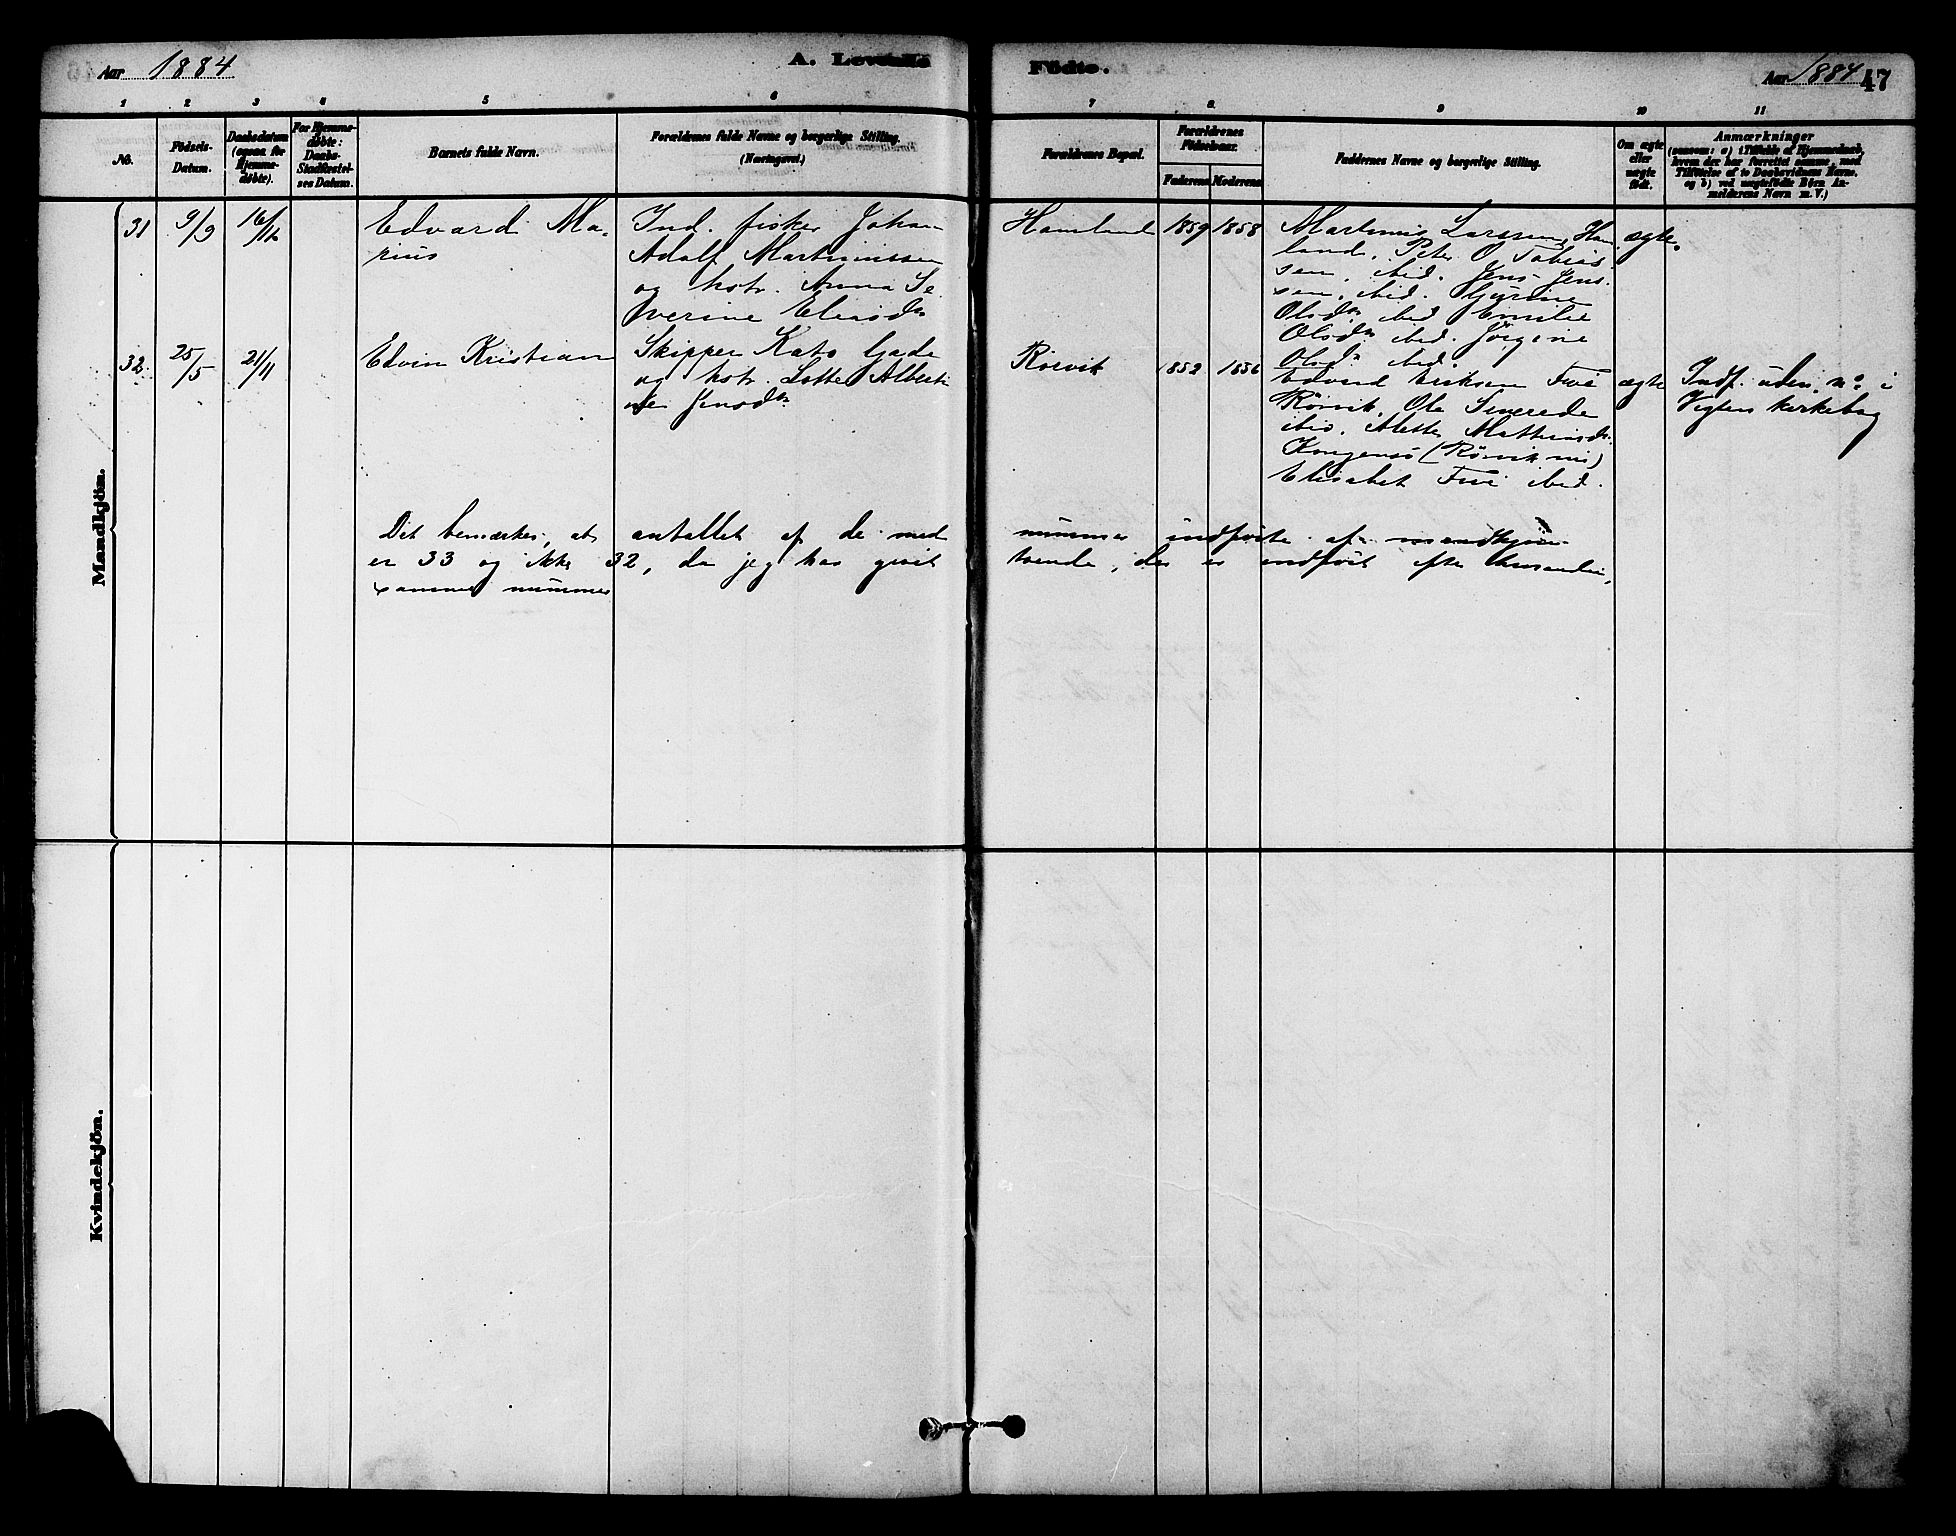 Aar 1884
A. Levende
Födte.
Aar 1884 47
1 2 3 4 5 6 7 8 9 10 11
No.
Födsels-
Datum.
Daabsdatum
(ogsaa for
Hjemme-
døbte).
For Hjemme-
døbte:
Daabs-
Stadfæstel-
ses Datum.
Barnets fulde Navn.
Forældrenes fulde Navne og borgerlige Stilling.
(Næringsvei.)
Forældrenes Bopæl.
Forældrenes
Födselsaar.
Faderens Moderens
Faddernes Navne og borgerlige Stilling.
Om ægte
eller
uægte
födt.
Anmærkninger
(saasom: a) i Tilfælde af Hjemmedaab,
hvem der har forrettet samme, med
Tilföielse af to Daabsvidners Navne,
og b) ved uægtefödte Börn An-
melderens Navn m. V.)
Mandkjön.
31
9/9
16/11
Edvard Ma-
rius
Ind. fisker Johan
Adolf Martinussen
og hstr. Anna Se
verine Eliasdtr
Hamland
1859 1858
Martinus Larssen, Ham
land, Peter O Tobias
sen, ibid. Jens Jens-
sen, ibid.
Olsdtr ibid Emilie
Olsdtr ibid. Jörgine
Olsdtr ibid.
ægte.
32.
25/5
21/11
Edvin Kristian
Skipper Kato Gade
og hstr. Lotte Alberti
ne Jensdtr
Rörvik
1852 1856
Edvard Eriksen
Rörvik, Ole
ibid, Mathiasdtr.
(Rörvik
Elisabet ibid.
ægte
Indf. uden no i
Vigtens kirkebog
Det bemærkes, at antallet af de med nummer indförte af mandkjön
er 33 og ikke 32, da jeg har givet tvende, der er indfört efter hinanden,
samme nummer
Kvindekjön.